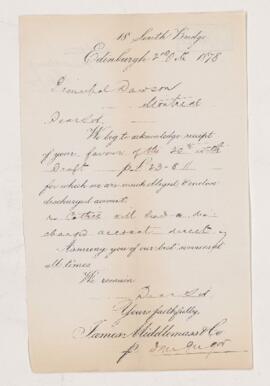 18 South Bridge
Edinburgh 2nd Oct 1878
Principal Dawson
Montreal
Dear Sir,
We beg to acknowledge receipt
of your favour of the 20th with
Draft p £ 23-8 11
for which we are much obliged & enclose
discharged account.
will send a dis-
charged account direct
Assuring you of our best services at
all times
We remain
Dear Sir
Yours faithfully,
James Middlemass & Co
p.